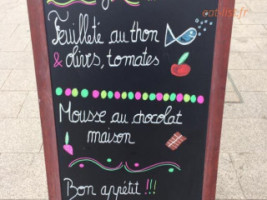 Feuilleté au thon
& olives, tomates
Mousse au chocolat
maison
Bon appétit !!!